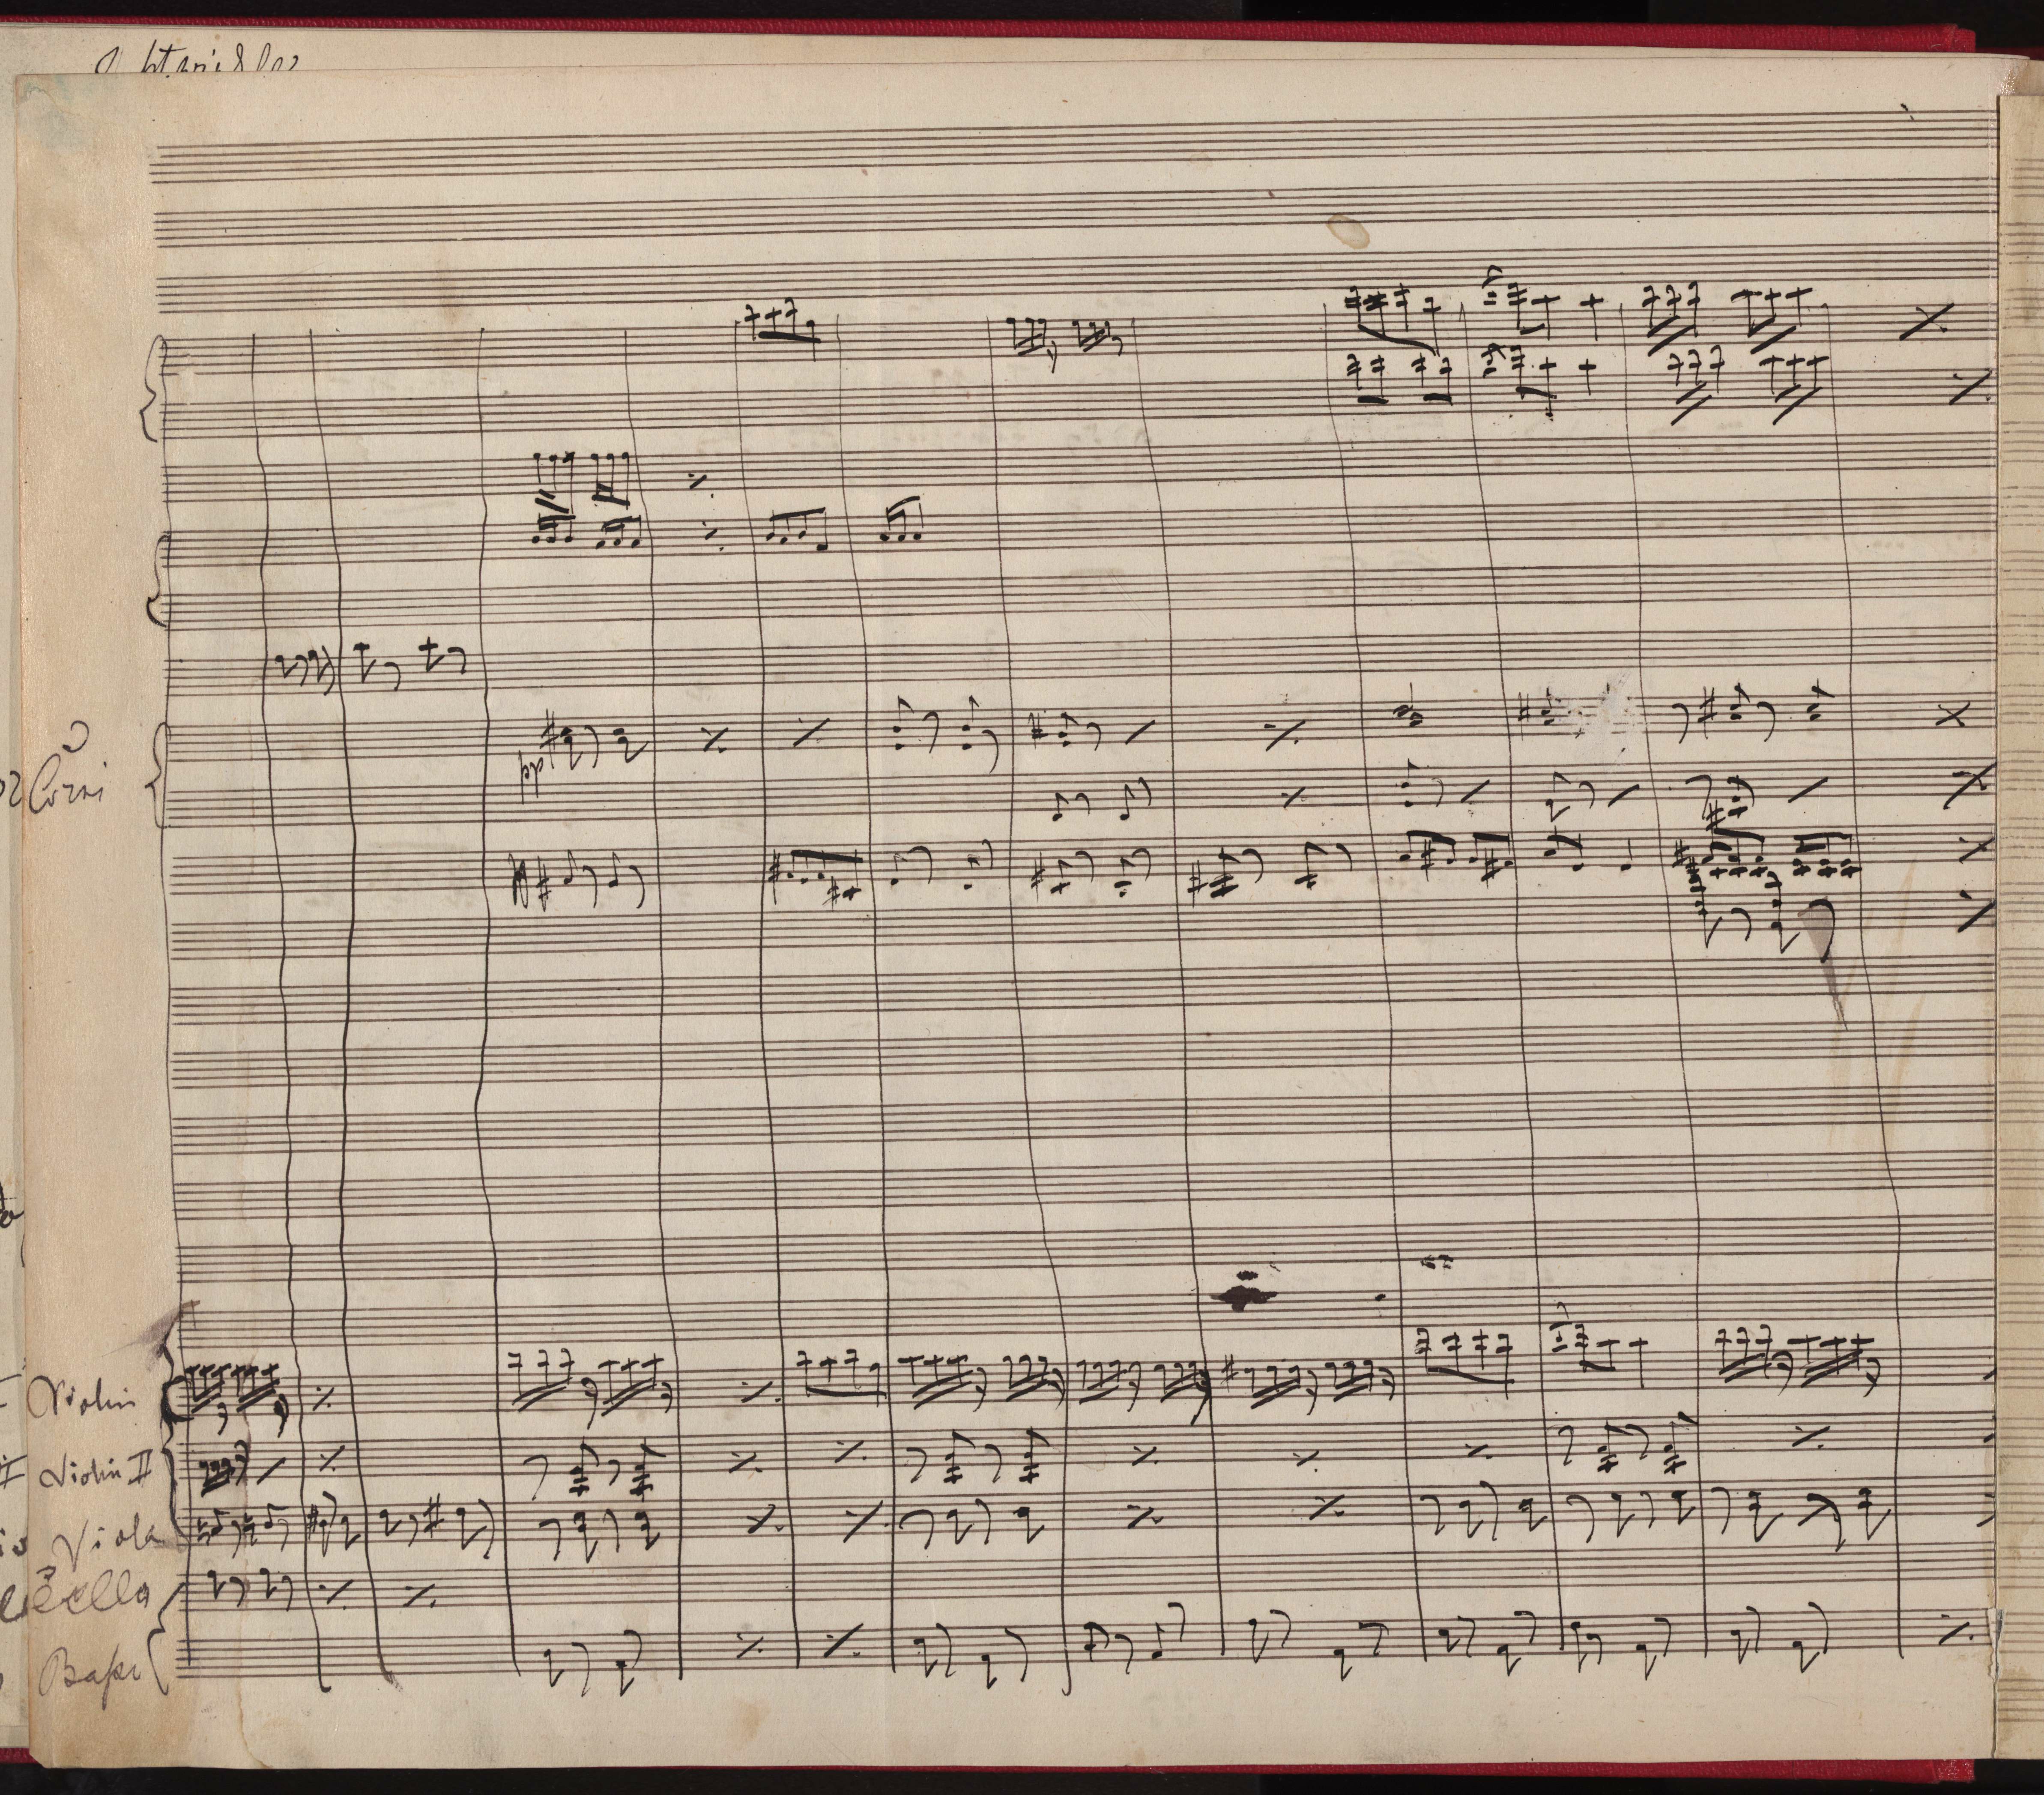 Corni
pp
Violin
Violin II
Viola
Cello
Baſsi